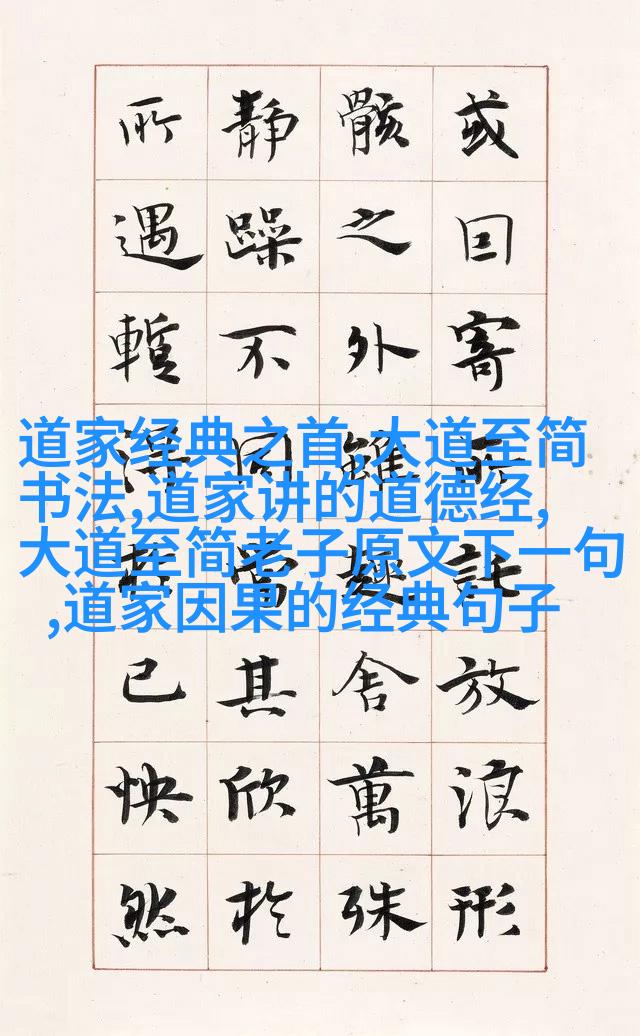 道家经典之首,大道至简
书法,道家讲的道德经,
大道至简老子原文下一句
,道家因果的经典句子
或囙寄所託放浪形
骸之外雖趣舍萬殊
靜躁不同當其欣於
所遇暫得於己怏然